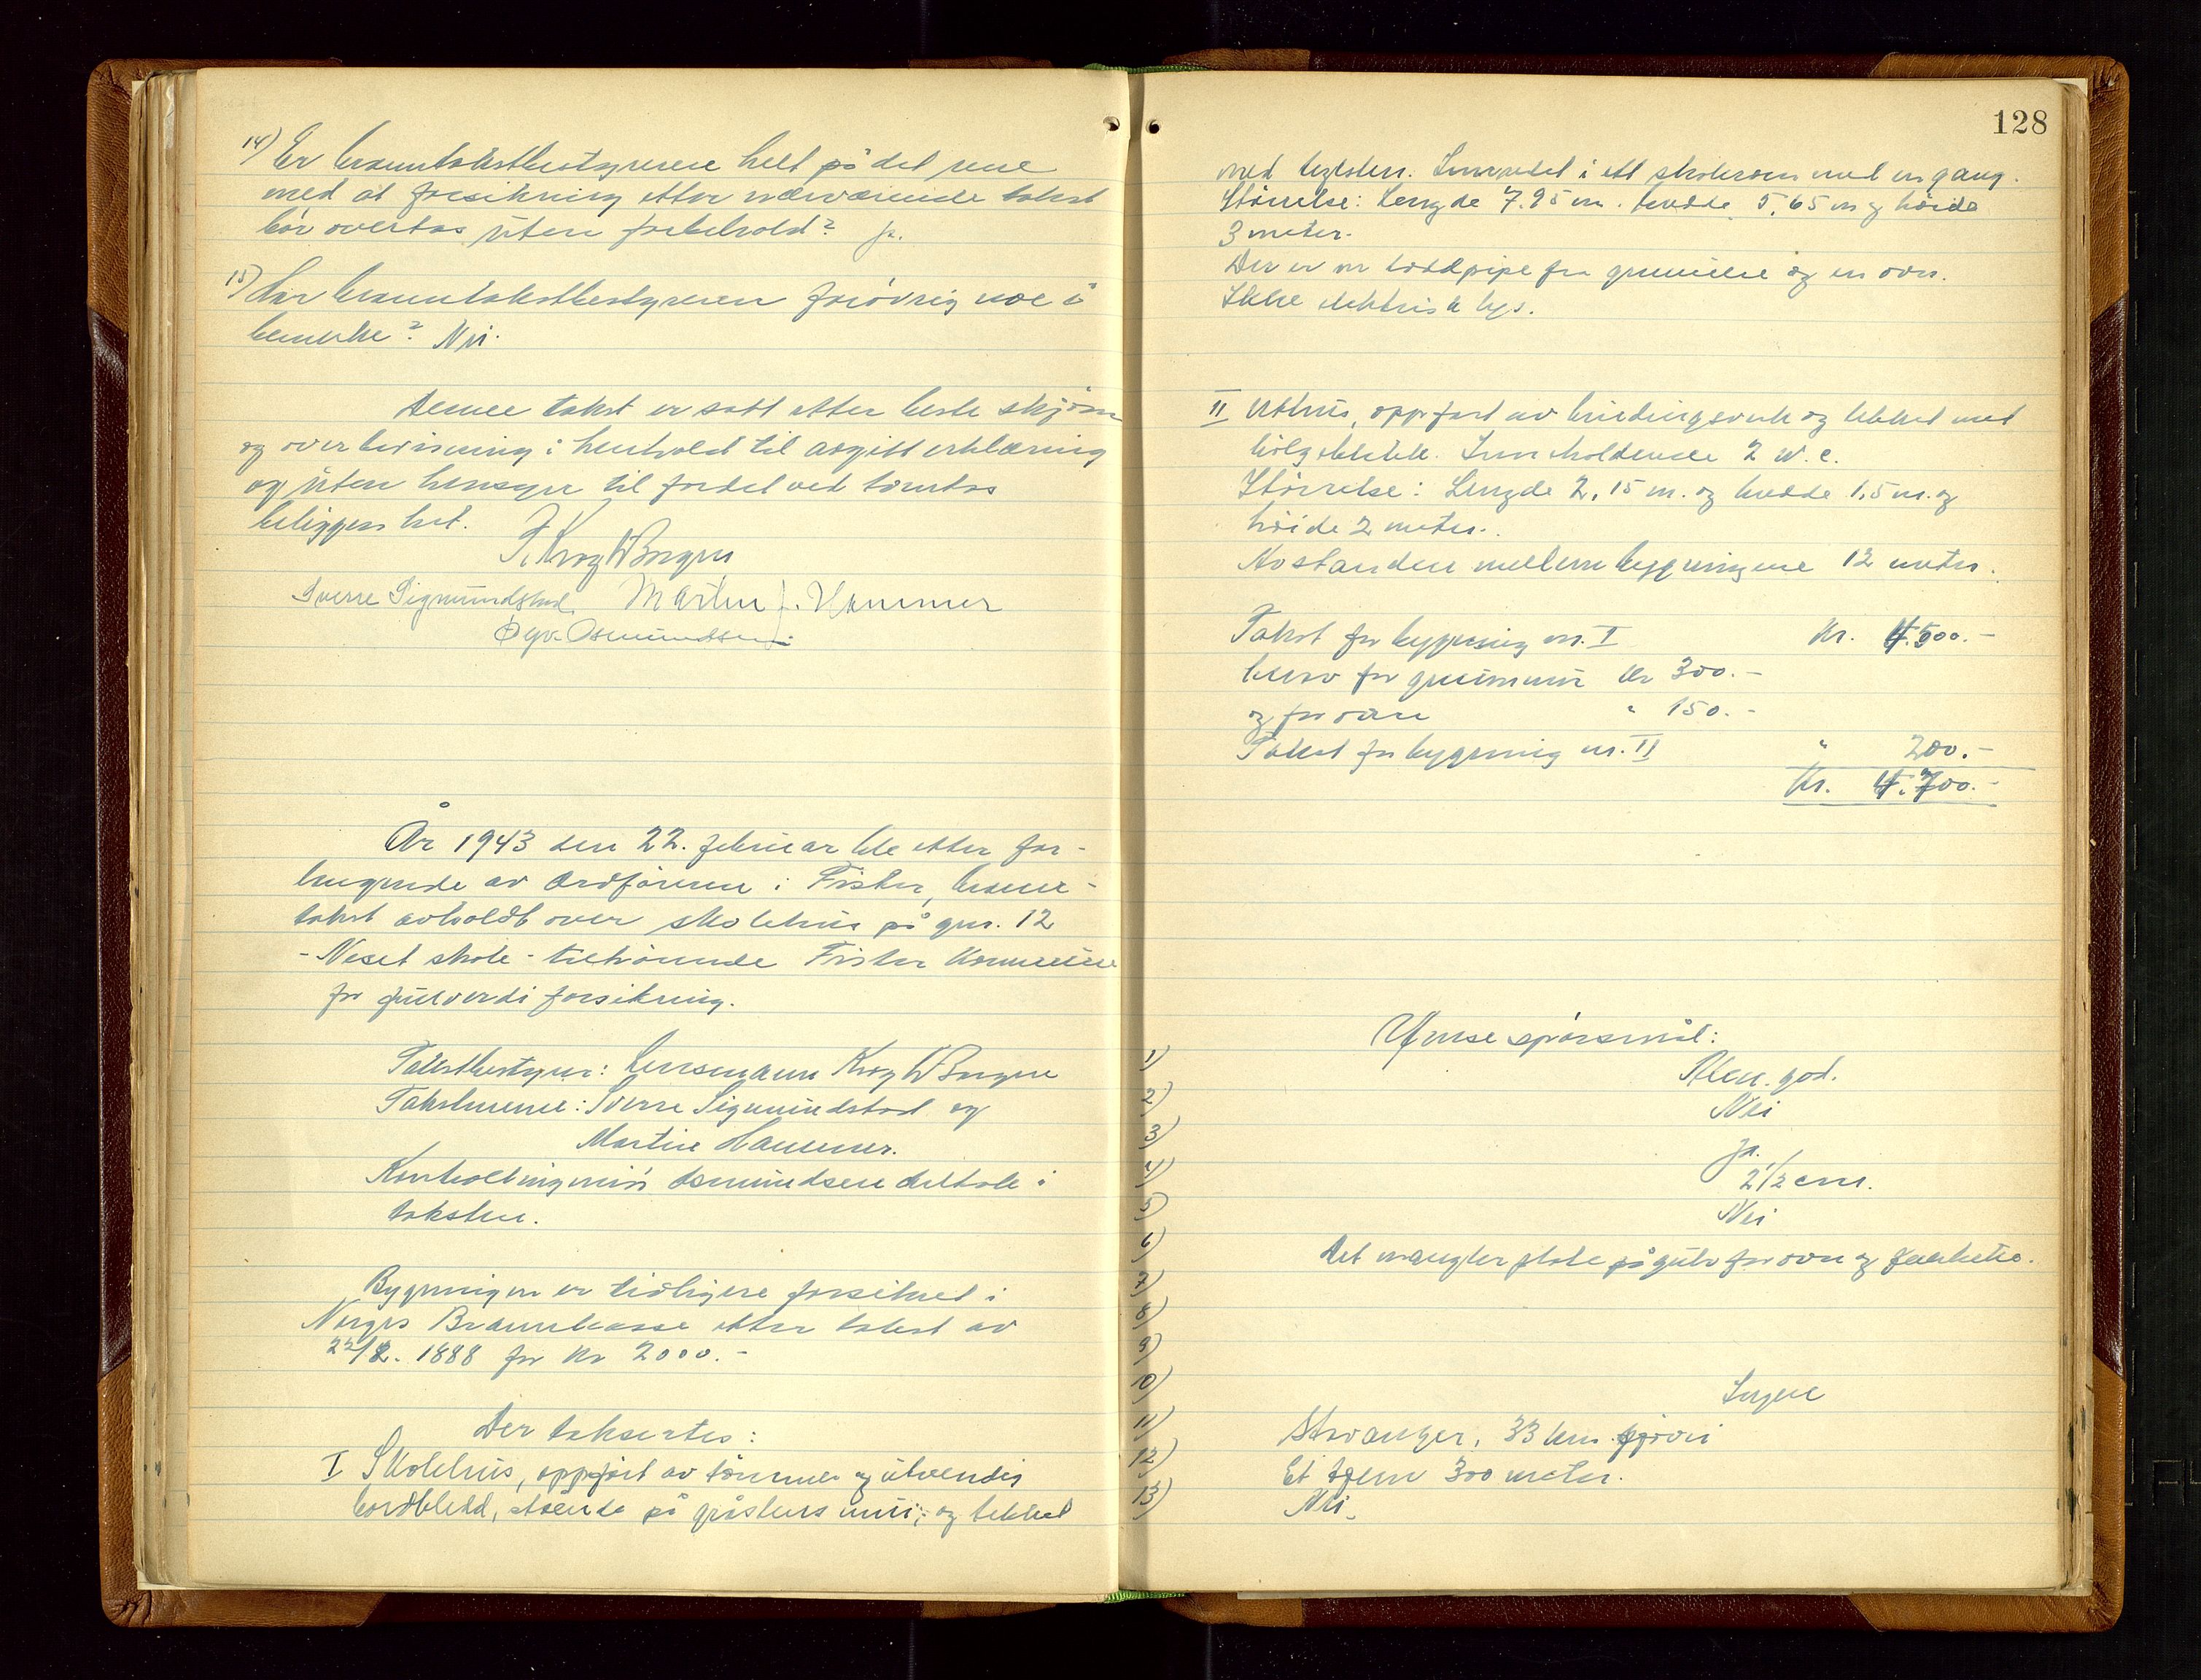 14) Er branntakstbestyreren helt på det rene
med at forsikring etter nærværende takst
bör overtas uten forbehold? Ja.
15) Har branntakstbestyreren forövrig noe å
bemerke? Nei.
Denne takst er satt etter beste skjönn
og overbevisning i henhold til avgitt erklæring
og uten hensyn til fordel ved tomtas
beliggenhet.
T. Krog W Borgen
Sverre Sigmundstad. Martin J. Hammer
Ogv. Osmundsen
År 1943 den 22. februar ble etter for-
langende av Ordföreren i Fister, brann-
takst avholdt over skolehus på gnr. 12
- Neset skole - tilhörende Fister kommune
for fullverdi forsikring.
Takstbestyrer: Lensmann Krog W Borgen
Takstmenn: Sverre Sigmundstad og
Martin Hammer.
Kontrollingeniör Osmundsen deltok i
taksten.
Bygningen er tidligere forsikret i
Norges Brannkasse etter takst av
22/2. 1888 for kr 2000.-
Der takseertes:
I Skolehus, oppfört av tömmer og utvendig
bordkledd, stående på gråstens mur, og tekket
128
med teglsten. Innredet i ett skolerom med en gang.
Störrelse: Lengde 7.25 m. bredde 5,65 m og höide
3 meter.
Der er en loddpipe fra grunnen og en ovn.
Ikke elektrisk lys.
II Uthus, oppfört av bindingsverk og tekket med
bölgeblikk. Inneholdende 2 W.C.
Störrelse: Lengde 2,15 m. og bredde 1,5 m. og
höide 2 meter.
Avstanden mellem bygningene 12 meter.
Takst for bygning nr. I Kr. 4.500.-
herav for grunnmur kr 300.-
og for ovn " 150.-
Takst for bygning nr. II " 200.-
Kr. 4.700.-
Ymse spörsmål:
1) Alm. god.
2) Nei
3) Ja.
4) 2 1/2 cm.
5) Nei
6) Det mangler plate på gulv for ovn og
7)
8)
9)
10) Ingen
11) Stavanger, 33 km. sjövei
12) Et tjern 300 meter.
13) Nei.